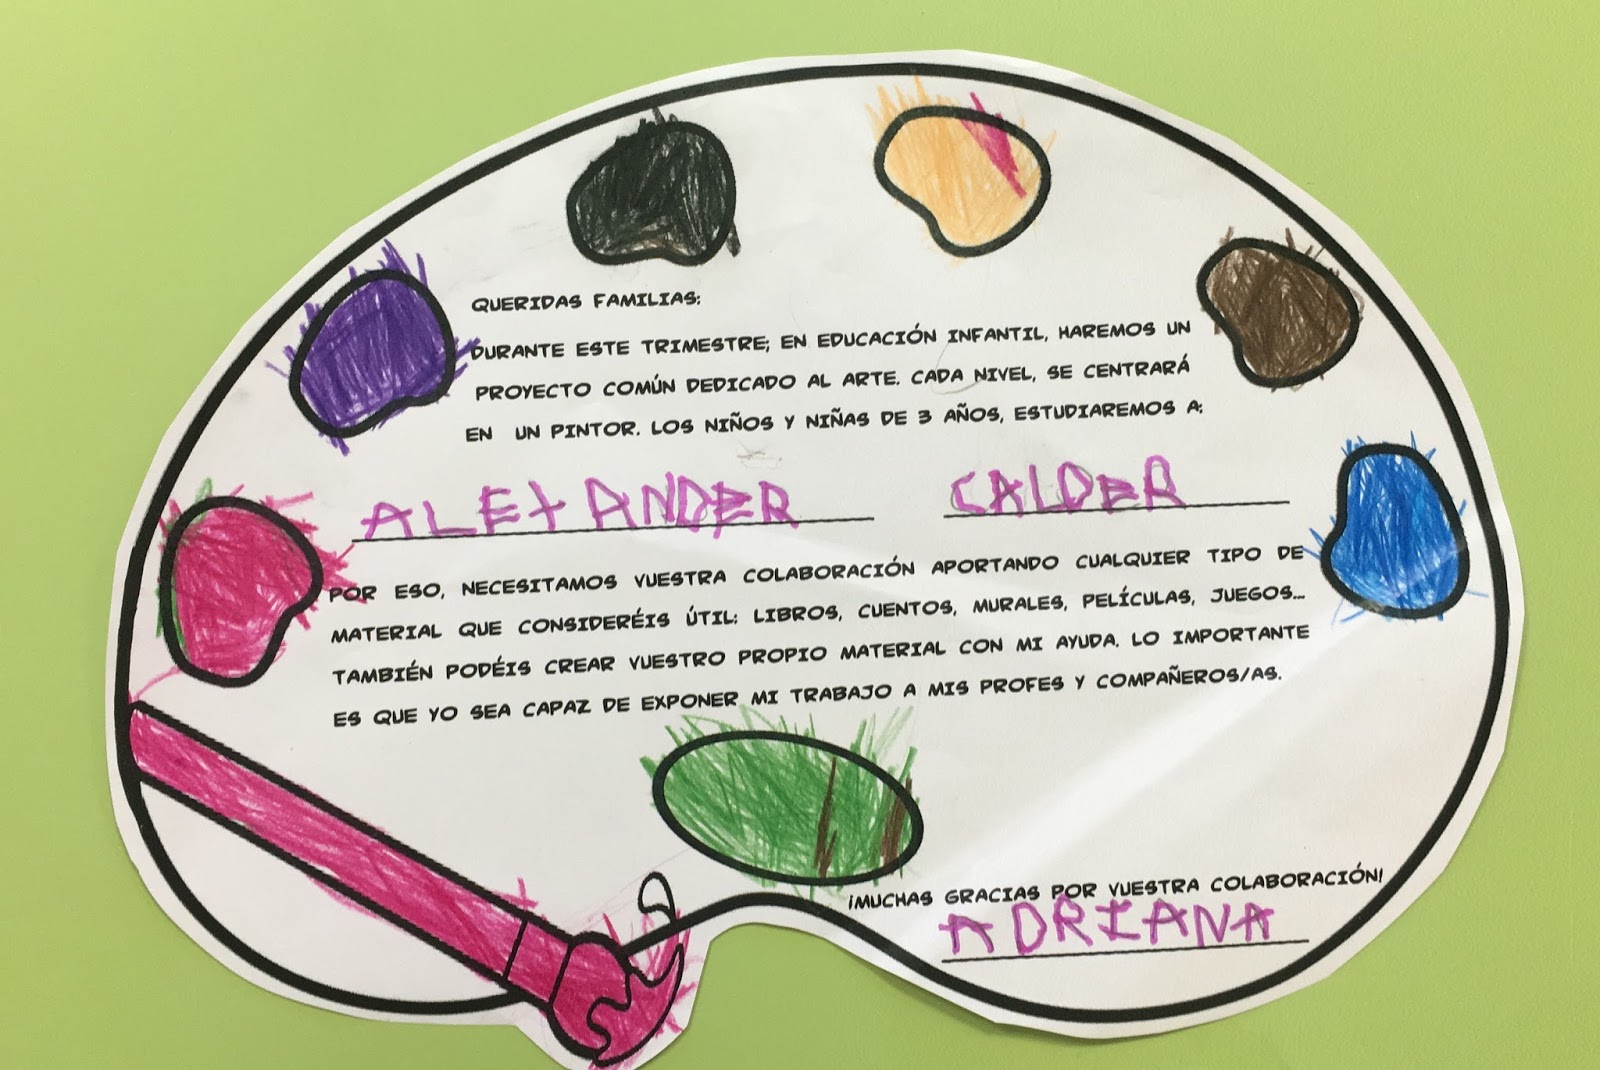 QUERIDAS FAMILIAS:
DURANTE ESTE TRIMESTRE; EN EDUCACIÓN INFANTIL, HAREMOS UN
PROYECTO COMÚN DEDICADO AL ARTE. CADA NIVEL, SE CENTRARÁ
EN UN PINTOR. LOS NIÑOS Y NIÑAS DE 3 AÑOS, ESTUDIAREMOS A:
ALEXANDER CALDER
POR ESO, NECESITAMOS VUESTRA COLABORACIÓN APORTANDO CUALQUIER TIPO DE
MATERIAL QUE CONSIDERÉIS ÚTIL: LIBROS, CUENTOS, MURALES, PELÍCULAS, JUEGOS...
TAMBIÉN PODÉIS CREAR VUESTRO PROPIO MATERIAL CON MI AYUDA. LO IMPORTANTE
ES QUE YO SEA CAPAZ DE EXPONER MI TRABAJO A MIS PROFES Y COMPAÑEROS/AS.
¡MUCHAS GRACIAS POR VUESTRA COLABORACIÓN!
ADRIANA